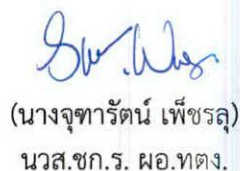 (นางจุฑารัตน์ เพ็ชรลุ)
นวส.ชก.ร. ผอ.ทตง.